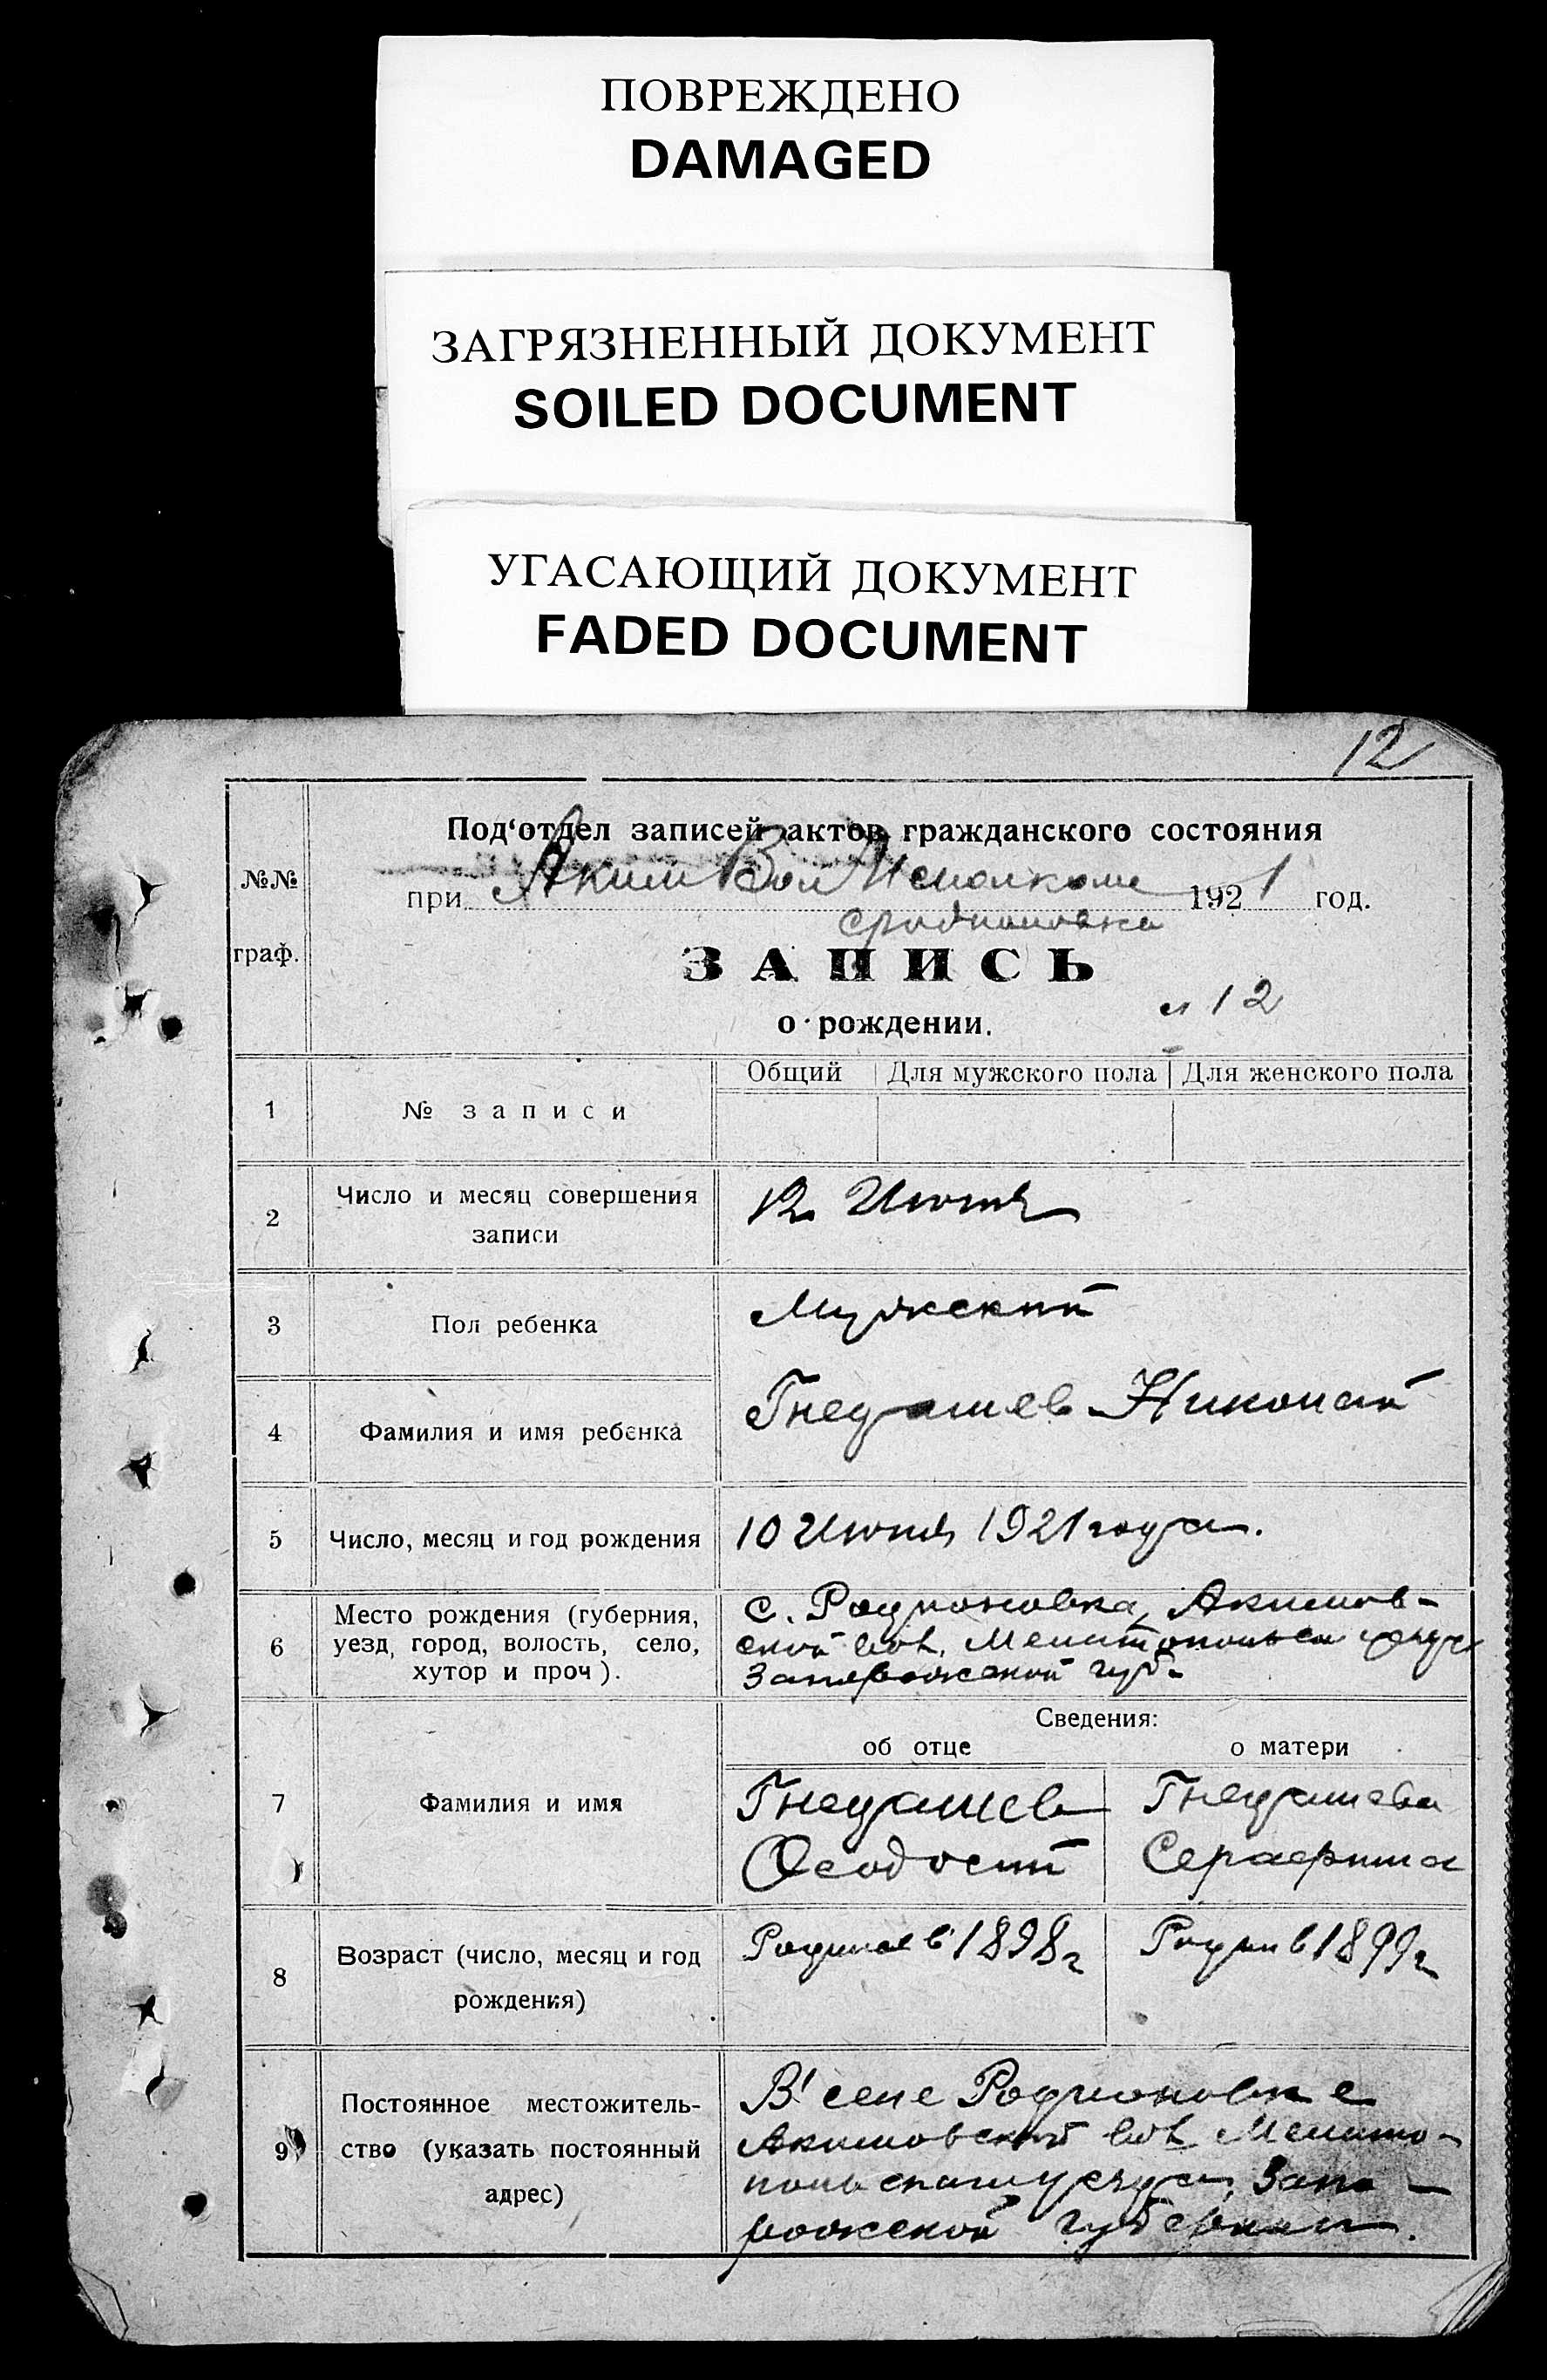 ПОВРЕЖДЕНО
DAMAGED
ЗАГРЯЗНЕННЫЙ ДОКУМЕНТ
SOILED DOCUMENT
УГАСАЮЩИЙ ДОКУМЕНТ
FADED DOCUMENT
12
№№
граф.
Под'отдел записей актов гражданского состояния
при Аким Вол Исполкоме 1921 год.
с Родионовка
ЗАПИСЬ
12
о рождении.
Общий Для мужского пола Для женского пола
1 № записи
2 Число и месяц совершения
записи
12 Июня
3 Пол ребенка
Мужский
4 Фамилия и имя ребенка
Гнедашев Николай
5 Число, месяц и год рождения
10 Июня 1921 года.
6 Место рождения (губерния,
уезд, город, волость, село,
хутор и проч).
с. Родионовка, Акимов-
ской вол. Мелитопольск уезда
Запорожской губ.
Сведения:
об отце о матери
7 Фамилия и имя
Гнедашев
Феодосий
Гнедашева
Серафима
8 Возраст (число, месяц и год
рождения)
Родился в 1898 г
Родил в 1899 г
9 Постоянное местожитель-
ство (указать постоянный
адрес)
В селе Родионовке
Акимовской вол Мелито-
польского уезда, Запо-
рожской губернии.